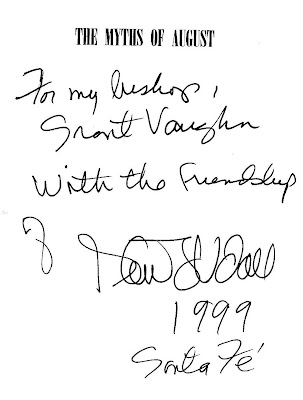 THE MYTHS OF AUGUST
For my bishop,
Grant Vaughn
With the Friendship
of Stewart Udall
1999
Santa Fé